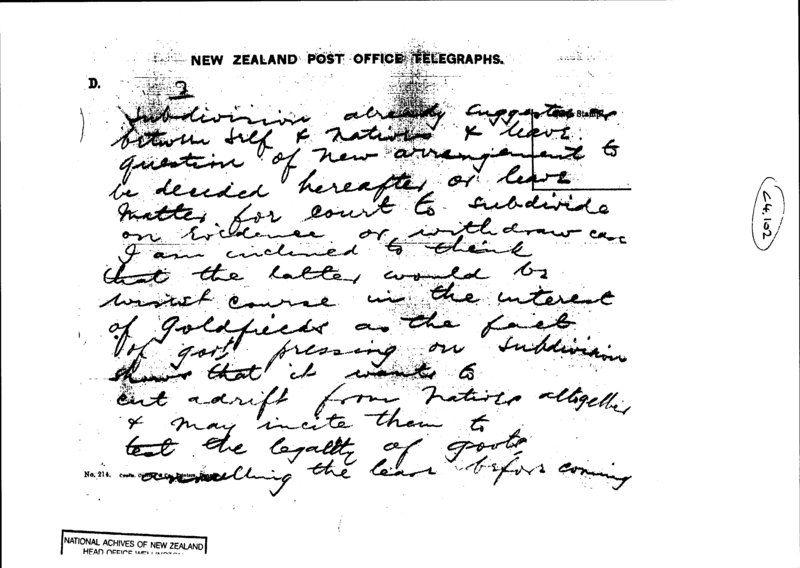 NEW ZEALAND POST OFFICE TELEGRAPHS.
D.
3
Subdivision already suggested
between self & Natives & leave
question of New arrangement to
be decided hereafter or leave
Matter for court to subdivide
on Evidence or withdraw case
I am inclined to think
that the latter would be
wisest course in the interest
of Goldfields as the fact
of govt pressing on subdivision
shows that it wants to
cut adrift from Natives altogether
& may incite them to
test the legality of govts
cancelling the lease before coming
No. 214.
C4.102
NATIONAL ACHIVES OF NEW ZEALAND
HEAD OFFICE WELLINGTON